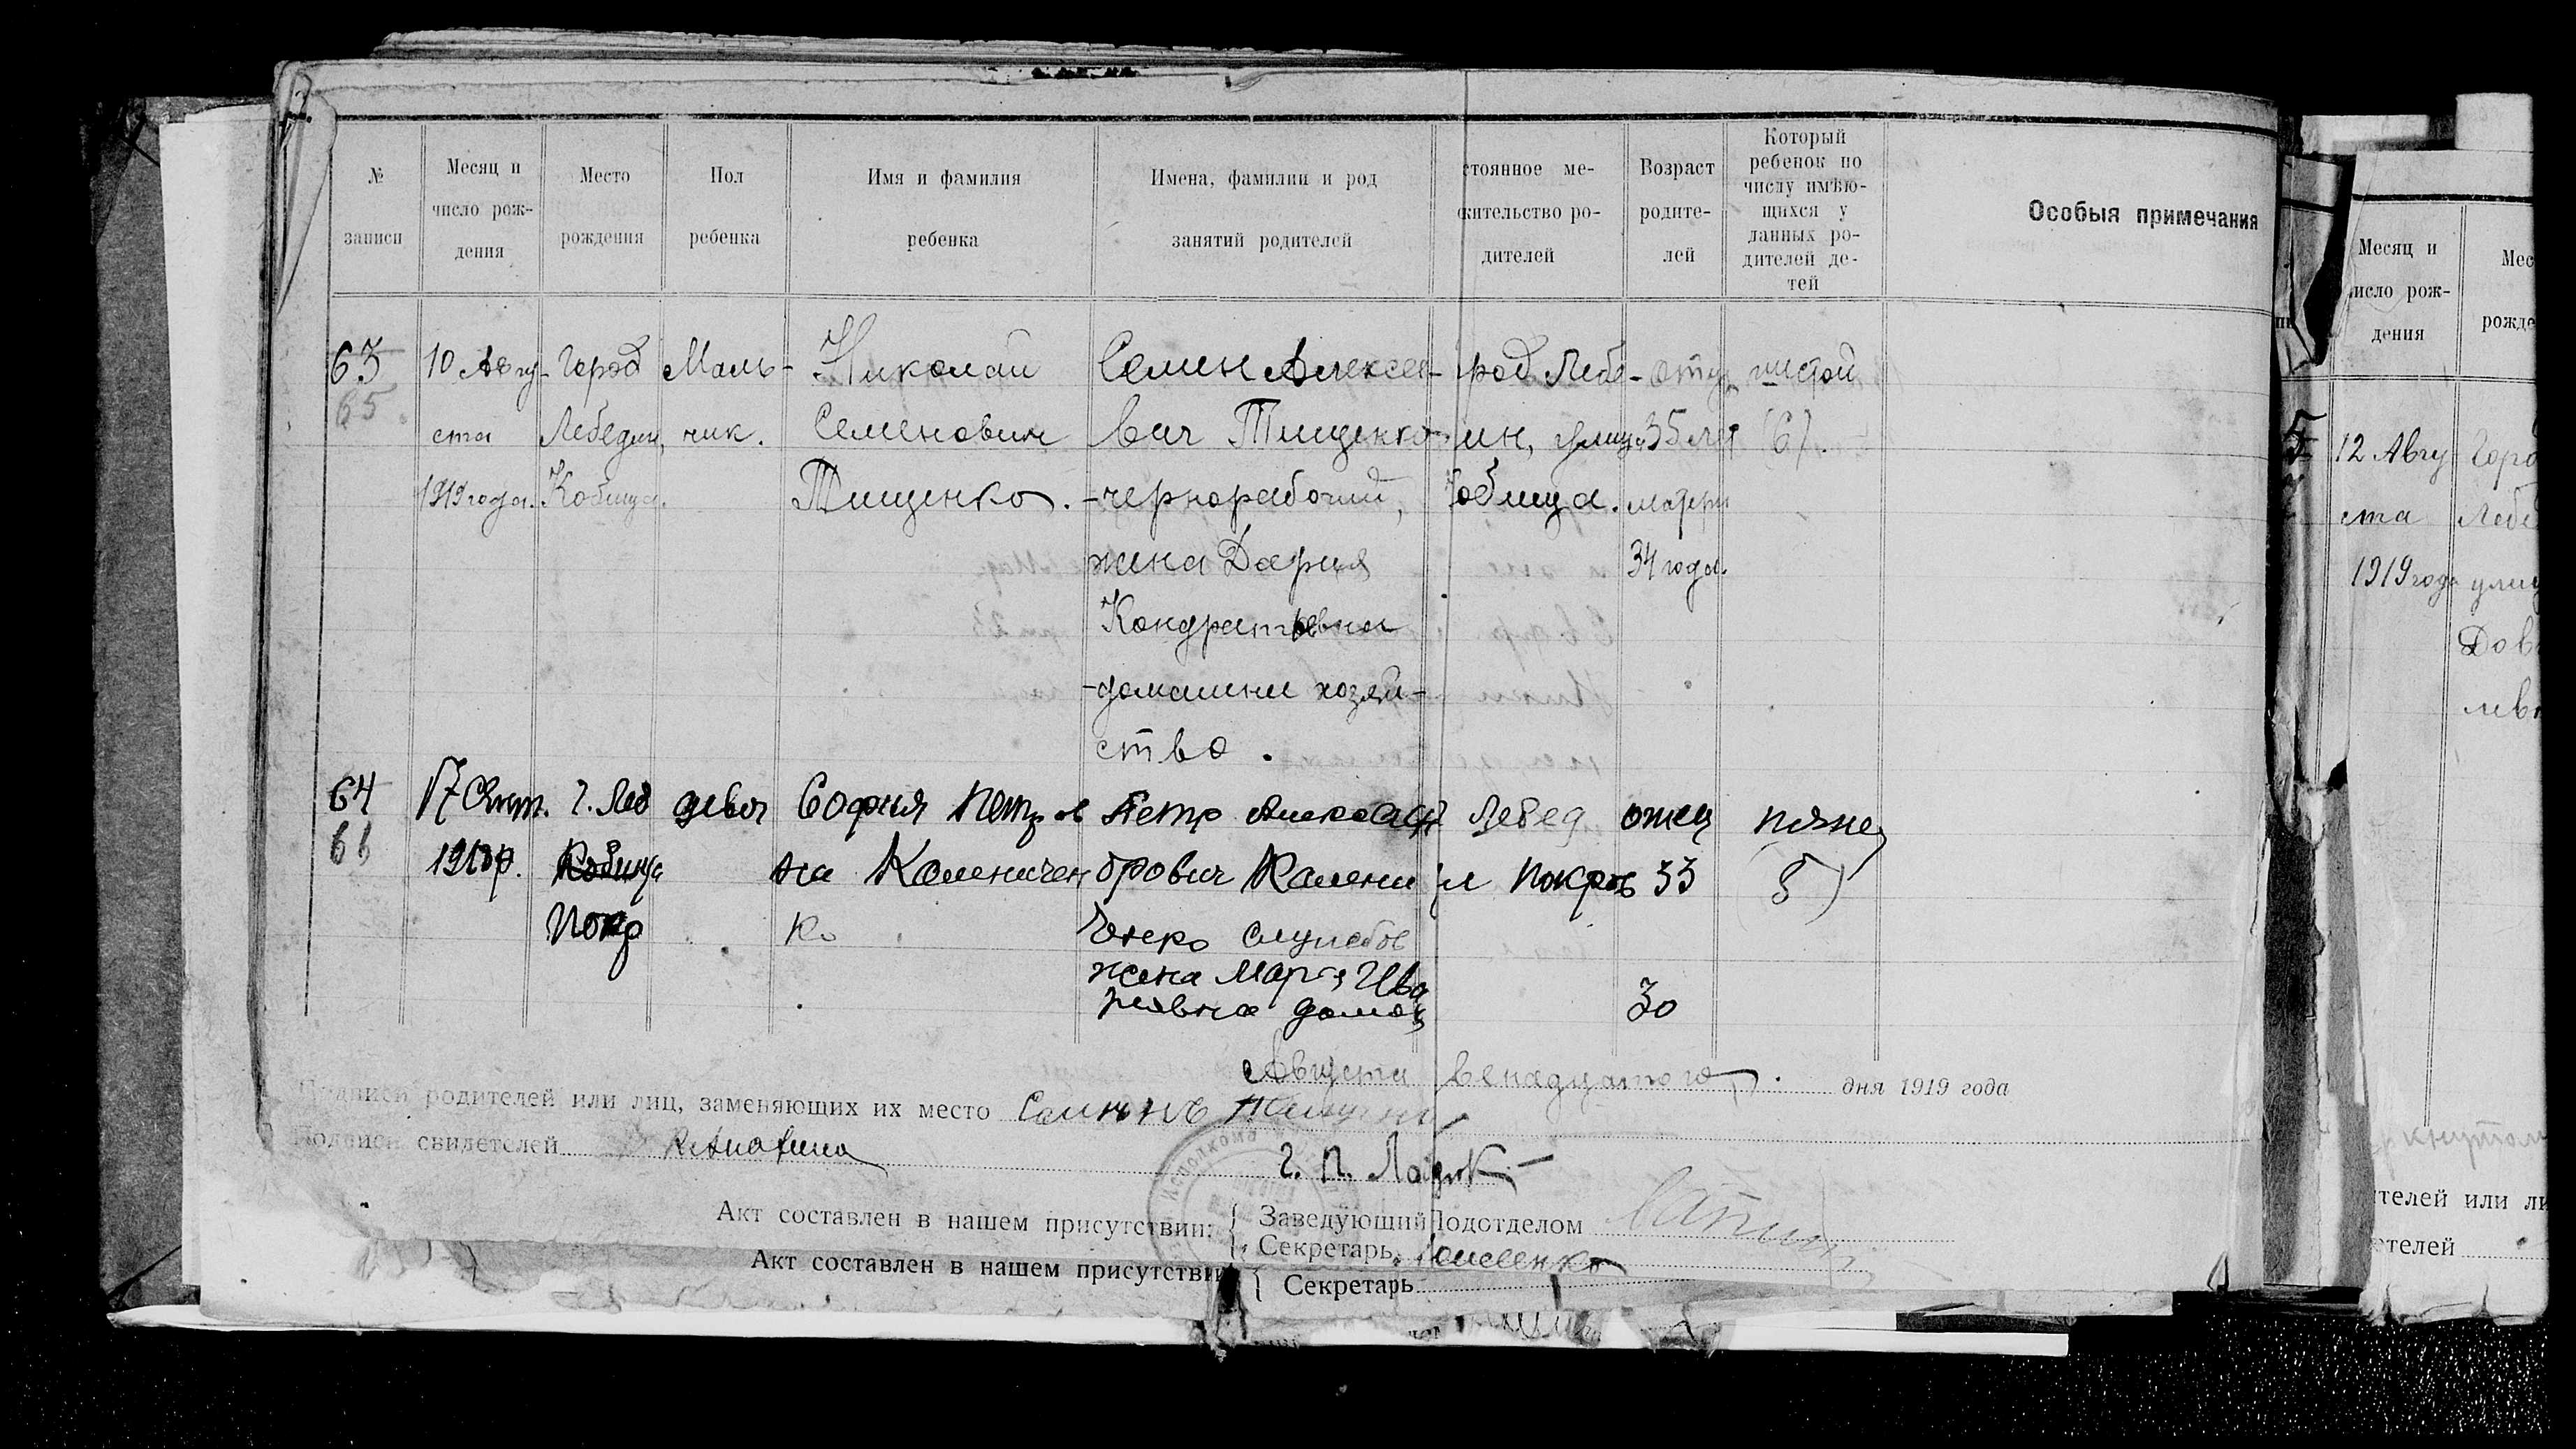 № записи
Месяц и число рождения
Место рождения
Пол ребенка
Имя и фамилия ребенка
Имена, фамилии и род занятий родителей
стоянное ме-
жительство ро-
дителей
Возраст родите-
лей
Который
ребенок по
числу имѣю-
щихся у
данных ро-
дителей де-
тей
Особыя примечания
63
65
10 Авгу-
ста
1919 года.
Город
Лебедин,
Кобища.
Маль-
чик.
Николай
Семенович
Тищенко.
Семен Алексее-
вич Тищенко
-чернорабочий,
жена Дария
Кондратьевна
-домашние хозяй-
ство.
род Лебе-
ин, улица
Кобища.
отцу
35 лет
матери
34 года.
шестой
(6).
64
66
17 Сент.
г. Леб
Кобища
Покр
девоч
София Петров
на Каленичен
ко
Петр Александ
дрович Калени
ченко служебов
жена Мария Ива
новна домох
Лебед
ул Покров
отец
33
30
пяте
(5)
Августа
дня 1919 года
Подписи родителей или лиц, заменяющих их место
Подписи свидетелей
Акт составлен в нашем присутствии: { Заведующий Подотделом
Секретарь
Акт составлен в нашем присутствии
{ Секретарь
Месяц и
число рож-
дения
12 Авгу
ста
1919 года
Мес
рожде
Горо
Лебе
улиц
телей или ли
етелей